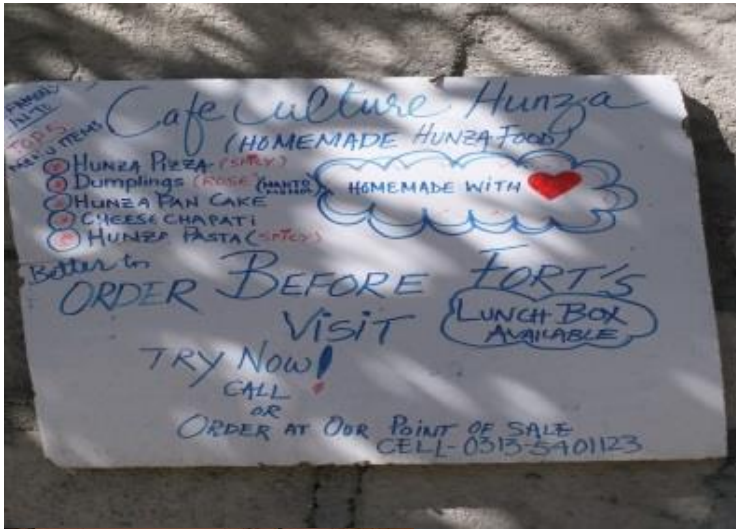 Cafe Culture Hunza
(HOMEMADE HUNZA FOOD)
TOP 5
MENU ITEMS
HUNZA PIZZA (SPICY)
Dumplings (ROSE) (MANTO
HUNZA PAN CAKE
CHEESE CHAPATI
HUNZA PASTA (SPICY)
HOMEMADE WITH
Better to
ORDER BEFORE FORT'S
VISIT
LUNCH BOX
AVAILABLE
TRY NOW!
CALL
OR
ORDER AT OUR POINT OF SALE
CELL-0313-5401123